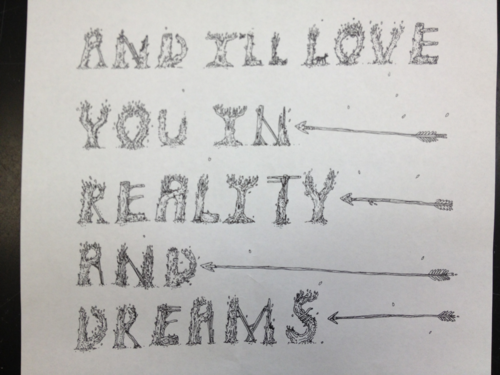 AND ILL LOVE
YOU IN
REALITY
AND
DREAMS